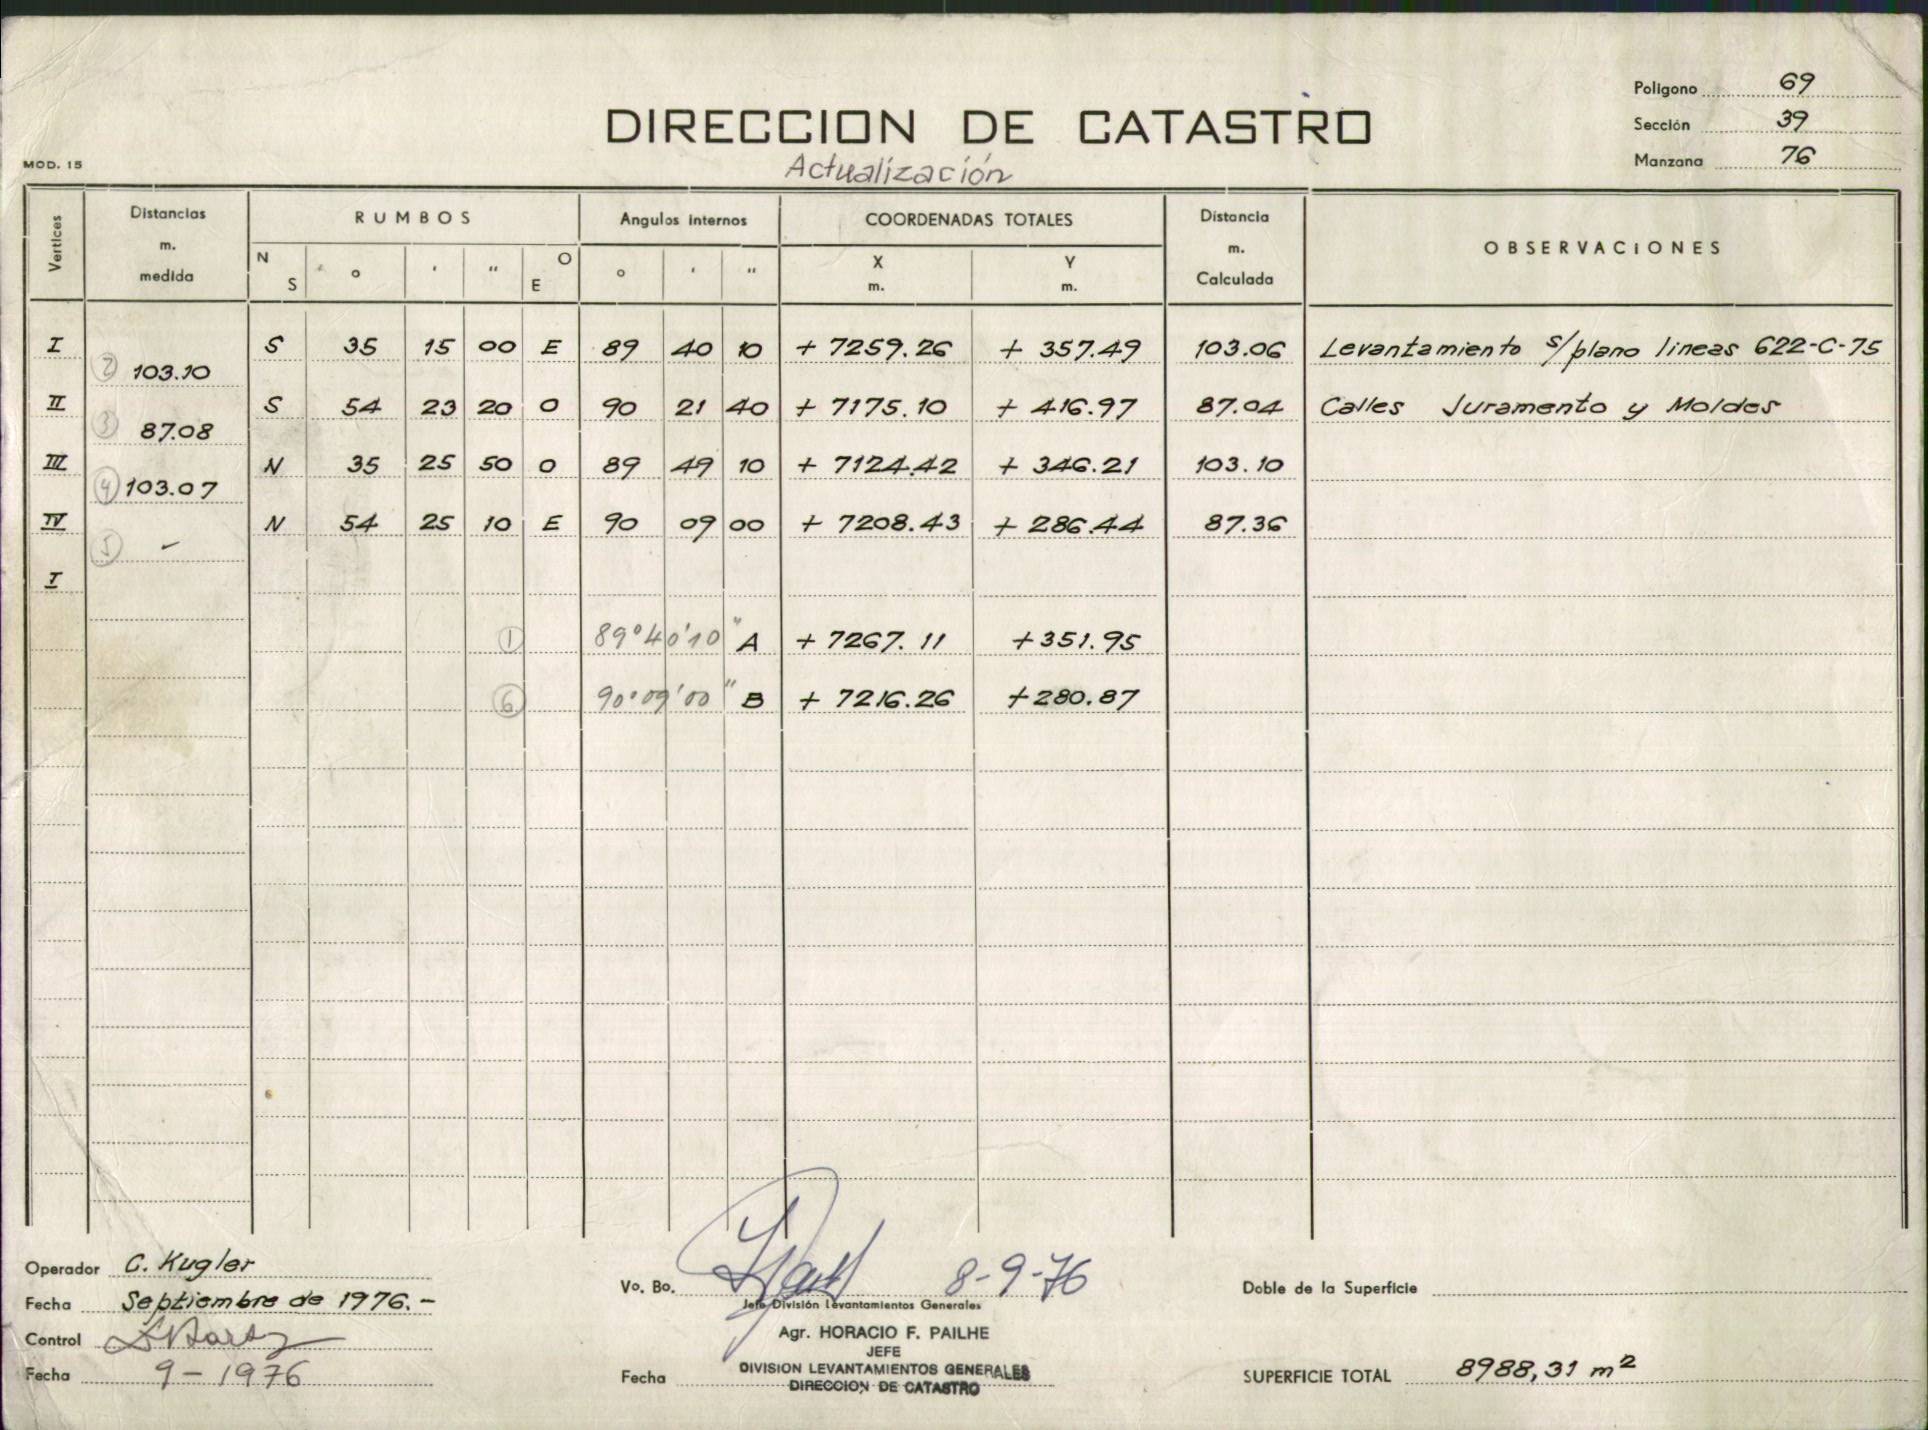 Poligono 69
DIRECCION DE CATASTRO
Sección 39
MOD. 15
Actualización
Manzana 76
Vertices
Distancias m. medida
RUMBOS
Angulos internos
COORDENADAS TOTALES
Distancia m. Calculada
OBSERVACIONES
N S ° ' " O E ° ' " X m. Y m.
I S 35 15 00 E 89 40 10 + 7259.26 + 357.49 103.06 Levantamiento s/plano lineas 622-C-75
2 103.10
II S 54 23 20 O 90 21 40 + 7175.10 + 416.97 87.04 Calles Juramento y Moldes
3 87.08
III N 35 25 50 O 89 49 10 + 7124.42 + 346.21 103.10
4 103.07
IV N 54 25 10 E 90 09 00 + 7208.43 + 286.44 87.36
5 -
I
1 89°40'10" A + 7267.11 +351.95
6 90°09'00" B + 7216.26 +280.87
Operador C. Kugler
Fecha Septiembre de 1976.-
Control
Fecha 9-1976
Vo. Bo. 8-9-76
Jefe División Levantamientos Generales
Agr. HORACIO F. PAILHE
JEFE
DIVISION LEVANTAMIENTOS GENERALES
DIRECCION DE CATASTRO
Fecha
Doble de la Superficie
SUPERFICIE TOTAL 8988,31 m2